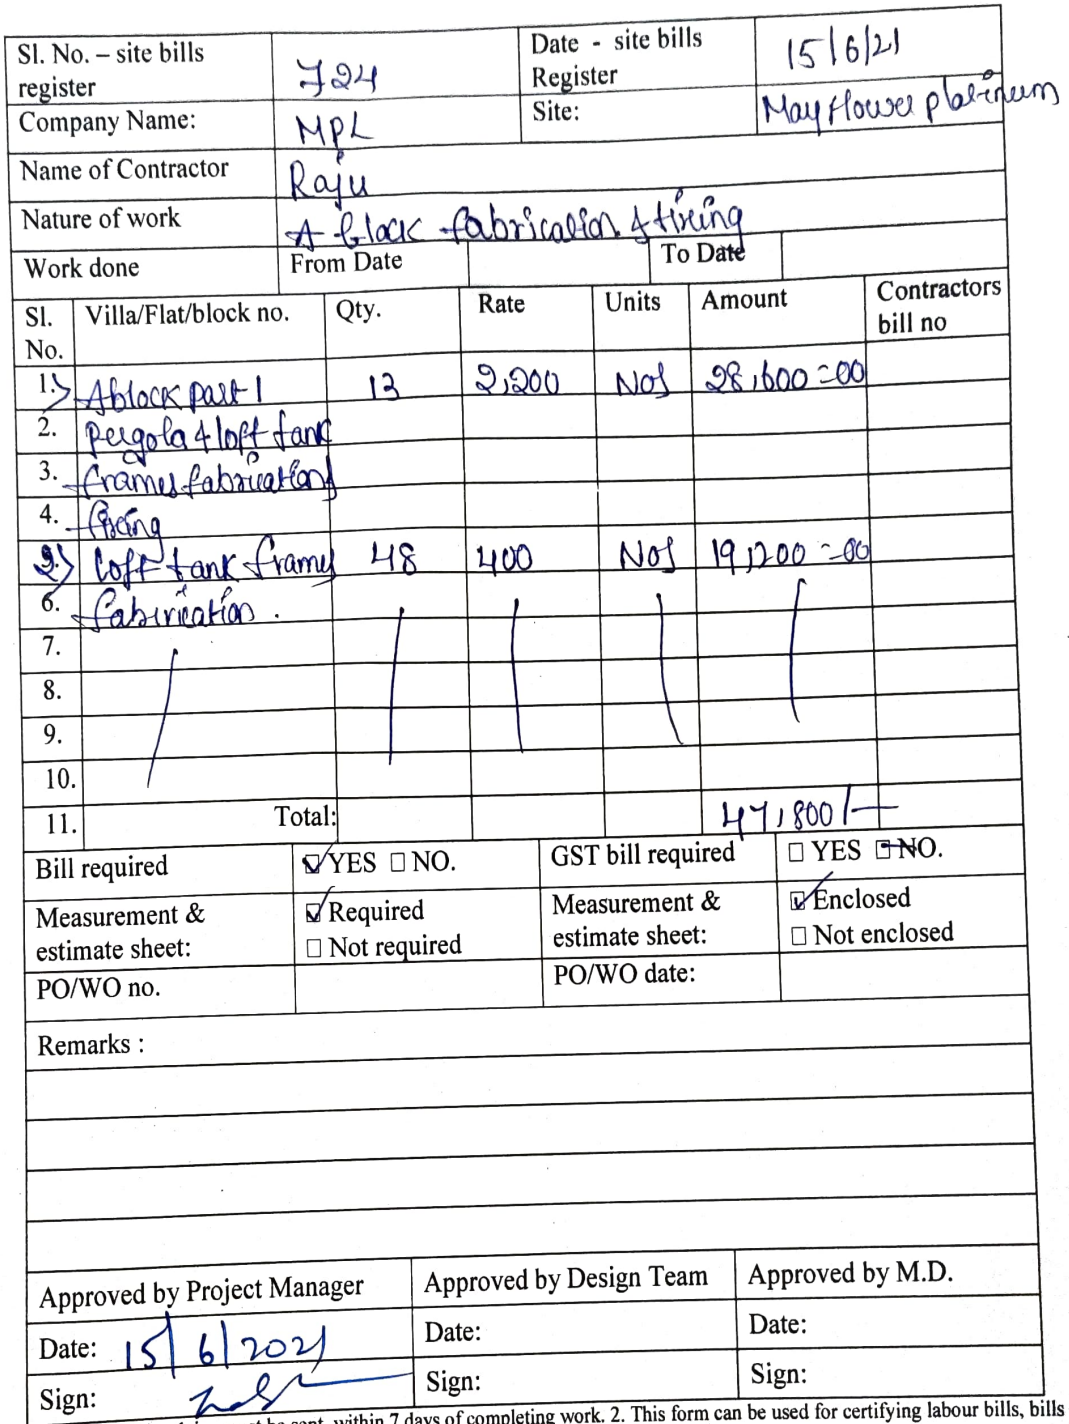 Sl. No. – site bills register 724 Date - site bills Register 15/6/21
Company Name: MPL Site: Mayflower platinum
Name of Contractor Raju
Nature of work A block fabrication & fixing
Work done From Date To Date
Sl. No. Villa/Flat/block no. Qty. Rate Units Amount Contractors bill no
1.> A block part 1 13 2,200 Nos 28,600=00
2. pergola & loft tank
3. frames fabrication &
4. fixing
2.> Loft tank frames 48 400 Nos 19,200=00
6. fabrication.
7.
8.
9.
10.
11. Total: 47,800/-
Bill required ☑ YES ☐ NO. GST bill required ☐ YES ☐ NO.
Measurement & estimate sheet: ☑ Required ☐ Not required Measurement & estimate sheet: ☑ Enclosed ☐ Not enclosed
PO/WO no. PO/WO date:
Remarks :
Approved by Project Manager Approved by Design Team Approved by M.D.
Date: 15/6/2021 Date: Date:
Sign: Sign: Sign:
sent within 7 days of completing work. 2. This form can be used for certifying labour bills, bills